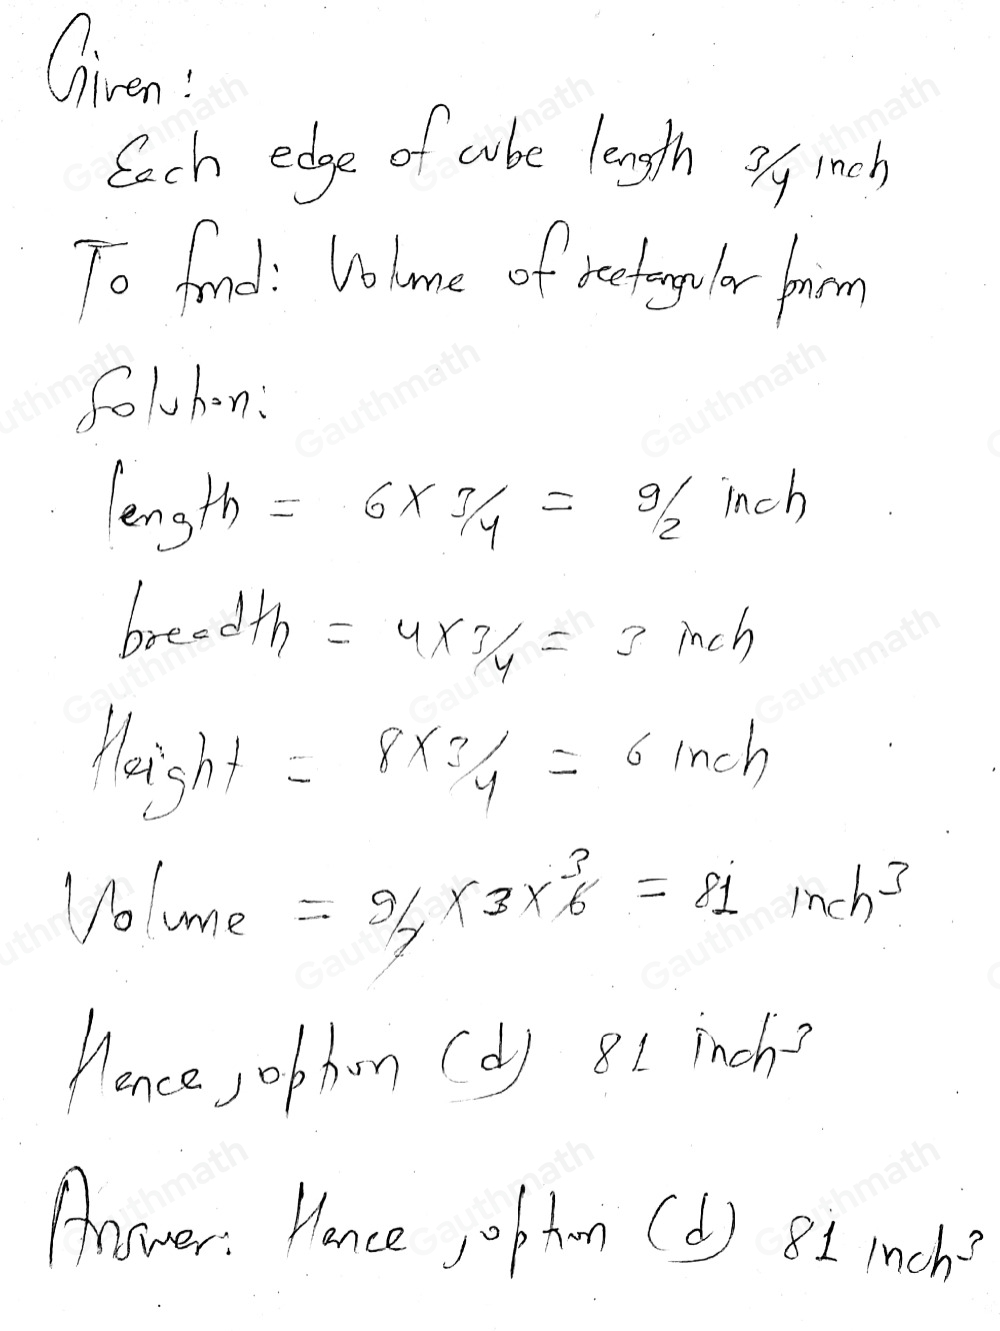 Given:
Each edge of cube length 3/4 inch
To find: Volume of rectangular prism
Solution:
length = 6 × 3/4 = 9/2 inch
breadth = 4 × 3/4 = 3 inch
Height = 8 × 3/4 = 6 inch
Volume = 9/2 × 3 × 6 3 = 81 inch³
Hence, option (d) 81 inch³
Answer: Hence, option (d) 81 inch³
Gauthmath